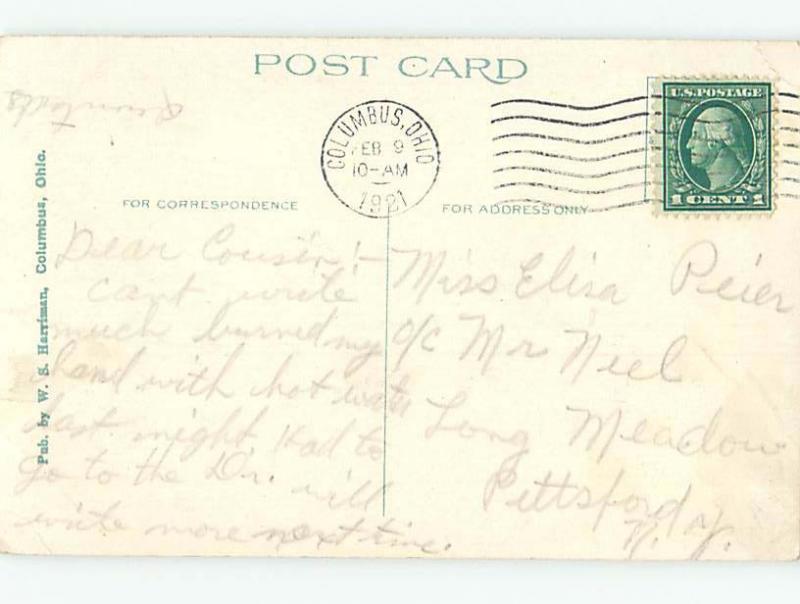 POST CARD
COLUMBUS, OHIO
FEB 9
10-AM
1921
U.S. POSTAGE
1 CENT 1
FOR CORRESPONDENCE
FOR ADDRESS ONLY
Pub. by W. S. Harriman, Columbus, Ohio.
Dear Cousin:-
cant write
much burned my
hand with hot water
last night had to
go to the Dr. will
write more next time.
Miss Elisa Peier
c/o Mr Neel
Long Meadow
Pittsford
N.Y.